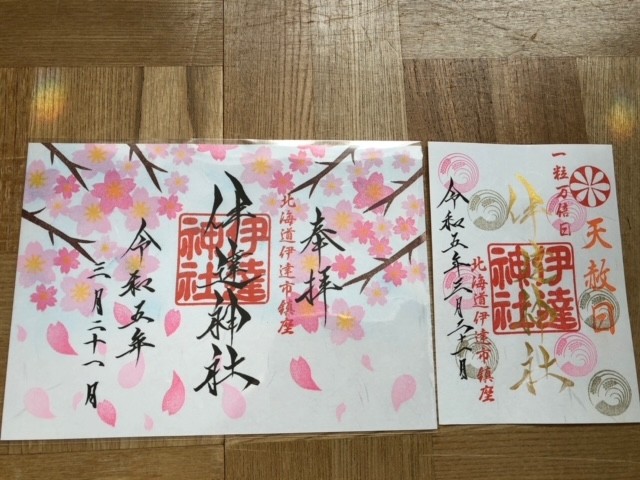 奉拝
北海道伊達市鎮座
伊達神社
伊達神社
令和五年
三月二十一日
天赦日
一粒万倍日
伊達神社
伊達神社
北海道伊達市鎮座
令和五年三月二十一日